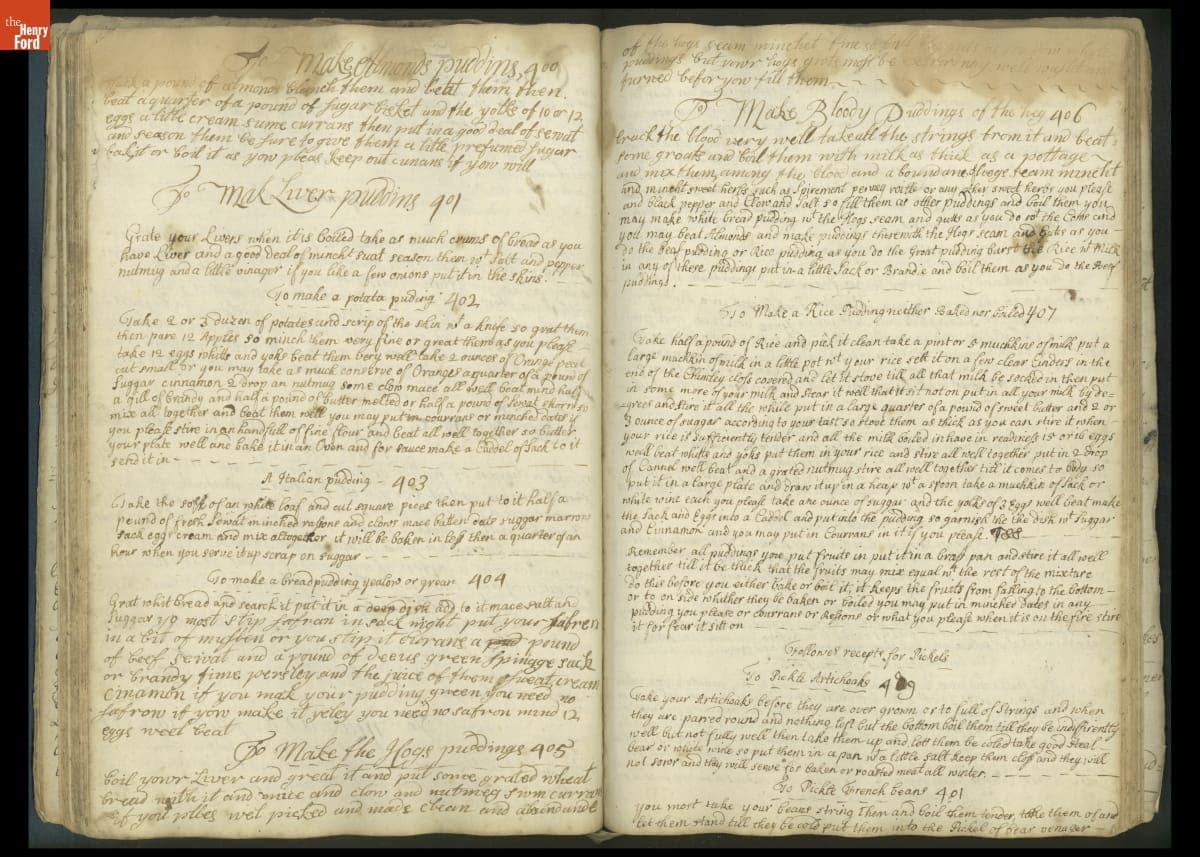 the
Henry
Ford
To Make Almonds puddins 400
Take a pound of almonds blanch them and beat them then
beat a quarter of a pound of sugar bisket and the yolks of 10 or 12
eggs a litle cream sume currans then put in a good deal of sewat
and season them be sure to give them a litle prefumed sugar
bak it or boil it as yow pleas keep out curans if yow will
To Mak Liver puddins 401
Grate your Livers when it is boiled take as much crums of bread as you
have Liver and a good deal of mincht suat season them wt Salt and pepper
nutmug and a little vinager if you like a few onions put it in the skins.
To make a potata puding 402
Take 2 or 3 duzen of potates and scrip of the skin wt a knife so grat them
then pare 12 Apples so minch them very fine or great them as you please
take 12 eggs whits and yoks beat them very well take 2 ounces of Orange peel
cut small or you may take as much conserve of Oranges a quarter of a pound of
suggar cinnamon 2 drop an nutmug some clow mace all well beat mind half
a gill of brandy and half a pound of butter melted or half a pound of sweat shorn so
mix all together and beat them well you may put in courrans or minched dates if
you please stire in an handfull of fine flour and beat all well together so butter
your plate well and bake it in an Oven and for sauce make a Caddel of Sack to it
send it in
A Italian pudding - 403
Take the soft of an white loaf and cut square pices then put to it half a
pound of fresh sewat minched rasons and clows mace baken dats suggar marrow
sack eggs cream and mix altogether it will be baken in less then a quarter of an
hour when you serve it up scrap on suggar
To make a bread pudding yealow or grean 404
Grat whit bread and search it put it in a deep dish add to it mace salt and
suggar yo most stip safran in sack night put your safren
in a bit of muslen or you stip it currans a pound
of beef sewat and a pound of deeus green spinage suck
or brandy time persley and the juice of them sweat cream
cinamon if you mak your pudding green you need no
safrow if yow make it yeley you need no safron mind 12
eggs weel beat
To Make the Hogs puddings 405
boil yowr Liver and great it and put some grated wheat
bread with it and mice and clow and nutmeg sum curran
if you plies wel picked and made clean and abundanc
of the hogs seam minchet
puddings but yowr hogs guts most be very well
turned befor yow fill them
To Make Bloody Puddings of the hog 406
bruck the blood very well take all the strings from it and beat
some groats and boil them with milk as thick as a pottage
and mix them among the blood and a boundance of hoge seam minchit
and mincht sweet herbs such as Spirement or any other sweet herbs you please
and black pepper and Clow and Salt so fill them as other puddings and boil them you
may make white bread pudding wt the Hogs seam and guts as you do wt the Cows and
you may beat Almonds and make puddings therewith the Hogs seam and guts as you
do the beaf pudding or Rice pudding as you do the Groat pudding burst the Rice wt Milk
in any of these puddings put in a little Sack or Brandie and boil them as you do the Beef
puddings.
To Make a Rice Pudding neither Baked nor Boiled 407
Take half a pound of Rice and pick it clean take a pint or 3 muchkins of milk put a
large muchkin of milk in a little pot wt your rice sett it on a few clear Cinders in the
end of the Chimley closs covered and let it stove till all that milk be socked in then put
in some more of your milk and stear it well that it sit not on put in all your milk by de-
grees and stire it all the while put in a large quarter of a pound of sweet butter and 2 or
3 ounce of suggar according to your tast so stove them as thick as you can stire it when
your rice is sufficiently tender and all the milk boiled in have in readiness 15 or 16 eggs
well beat whits and yoks put them in your rice and stire all well together put in 2 drop
of Cannel well beat and a grated nutmug stire all well together till it comes to body so
put it in a large plate and draw it up in a heap wt a spoon take a muchkin of Sack or
white wine each you please take ane ounce of suggar and the yalks of 3 Eggs well beat make
the Sack and Eggs into a Caddel and put into the pudding so garnish the the dish wt Suggar
and Cinnamon and you may put in Courrans in it if you please.
Remember all puddings you put fruits in put it in a brass pan and stire it all well
together till it be thick that the fruits may mix equal wt the rest of the mixture
do this before you either bake or boil it, it keeps the fruits from falling to the bottom
or to on side whither they be baken or boiled you may put in minched dates in any
pudding you please or courrans or Resons or what you please when it is on the fire stire
it for fear it sitt on
Followes recepts for Pickels
To Pickle Artichoaks 409
Take your Artichoaks before they are over grown or to full of strings and when
they are parred round and nothing left but the bottom boil them till they be indifferently
well but not fully well then take them up and lett them be cold take good steal
bear or white wine so put them in a pan wt a little salt keep them closs and they will
not sowr and they will serve for baken or roasted meat all winter.
To Pickle French beans 401
You most take your beans string them and boil them tender, take them of and
let them stand till they be cold put them into the Pickel of bear venager